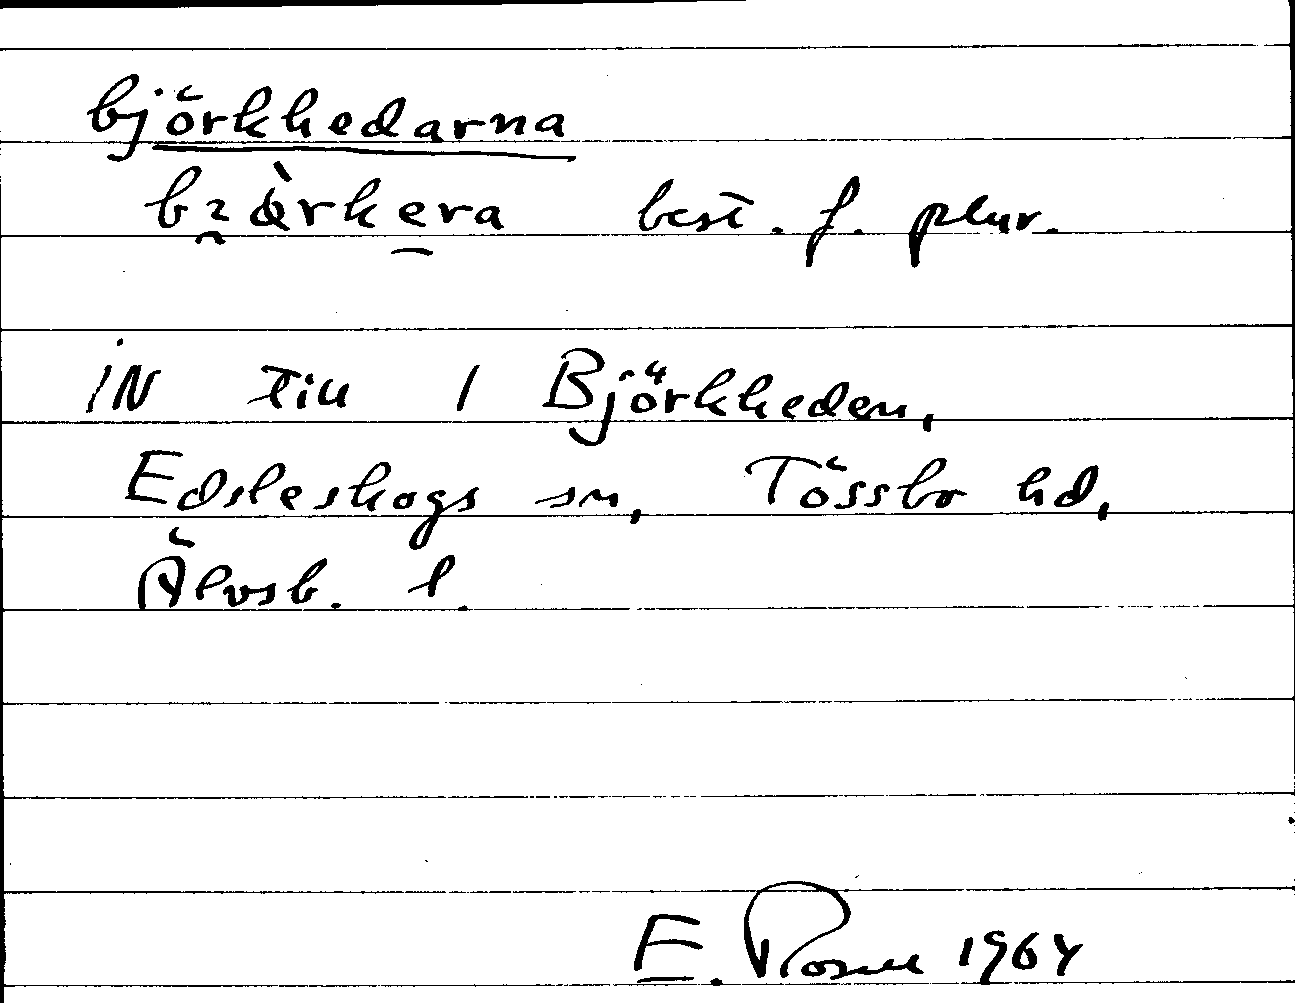 björkhedarna
best. f. plur.
IN till 1 Björkheden,
Edsleskogs sn, Tössbo hd,
Älvsb. l.
E. Rosell 1964